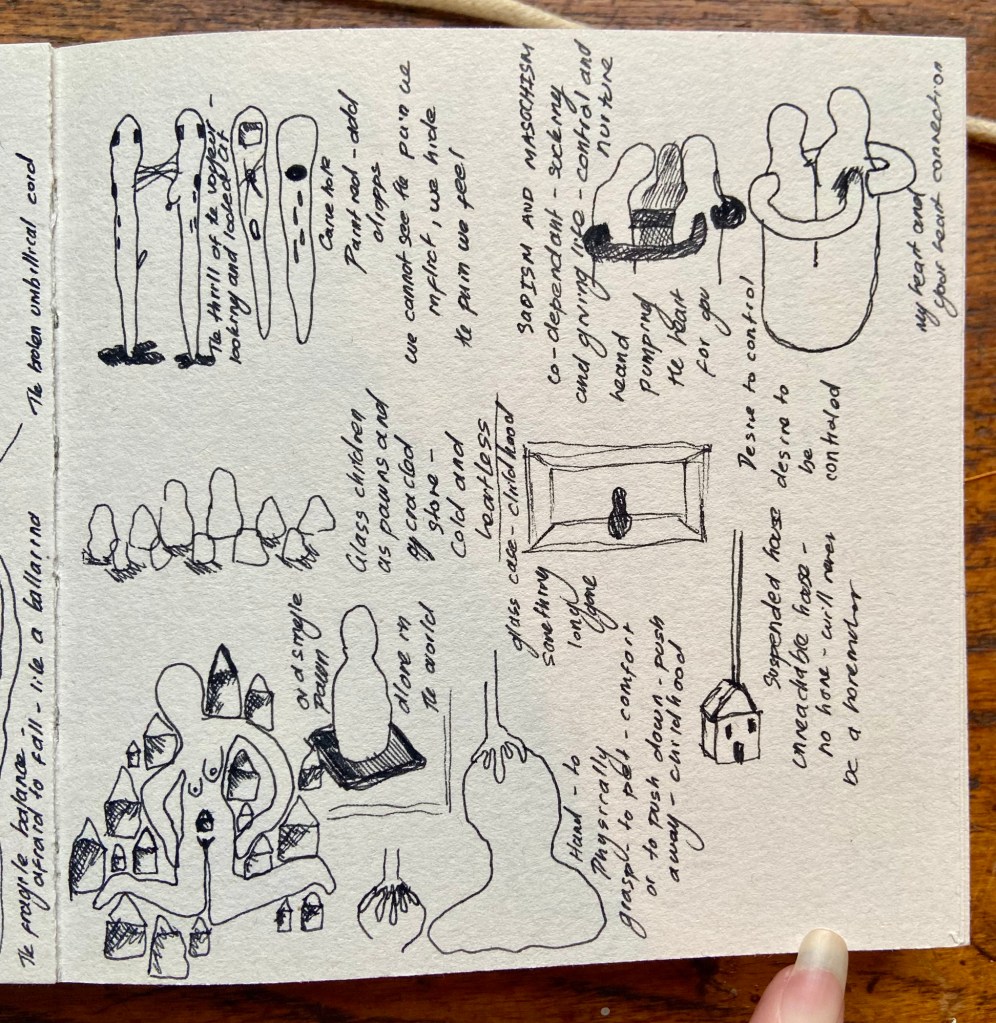 The fragile balance -
afraid to fall - like a ballarina
The broken umbillical cord
The thrill of te voyeur -
looking and looked at
Cane hole
Paint red - add
dropps
we cannot see the pain we
inflict, we hide
te pain we feel
Glass children
as pawns and
of cracled
stone -
Cold and
heartless
and single
pawn
alone in
te world
SADISM AND MASOCHISM
co-dependant - suckling
and giving life - control and
nurture
heand
pumping
the heart
for you
glass case - childhood
something
long
gone
Hand - to
Physically
grasp - to pet - comfort
or to push down - push
away - childhood
Desire to control
desire to
be
controled
Suspended house
unreachable house -
no home - will never
be a
my heart and
your heart connection